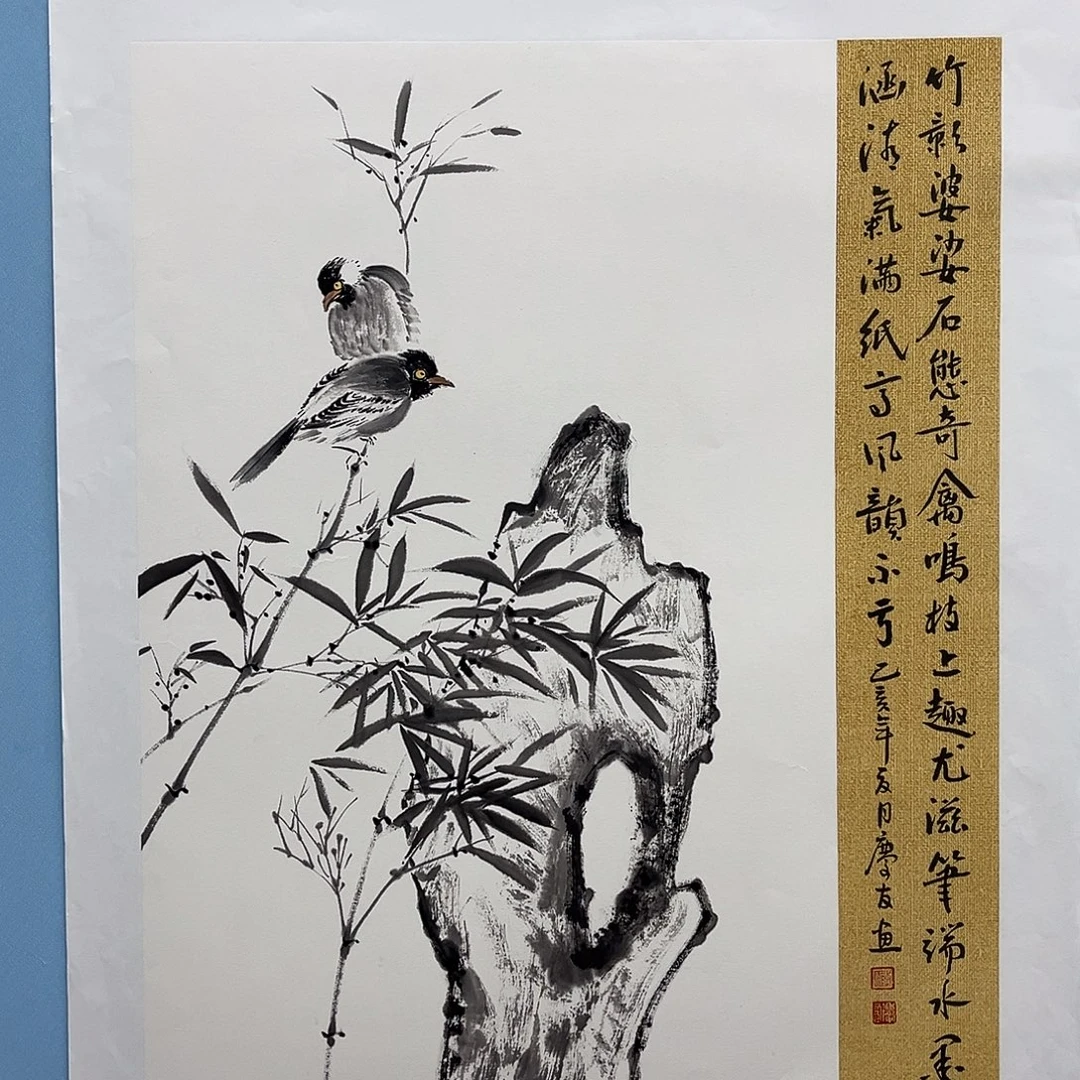 竹影婆娑石態奇禽鳴枝上趣尤滋筆端水墨
涵清氣滿紙高風韻不亏己亥年月慶友画